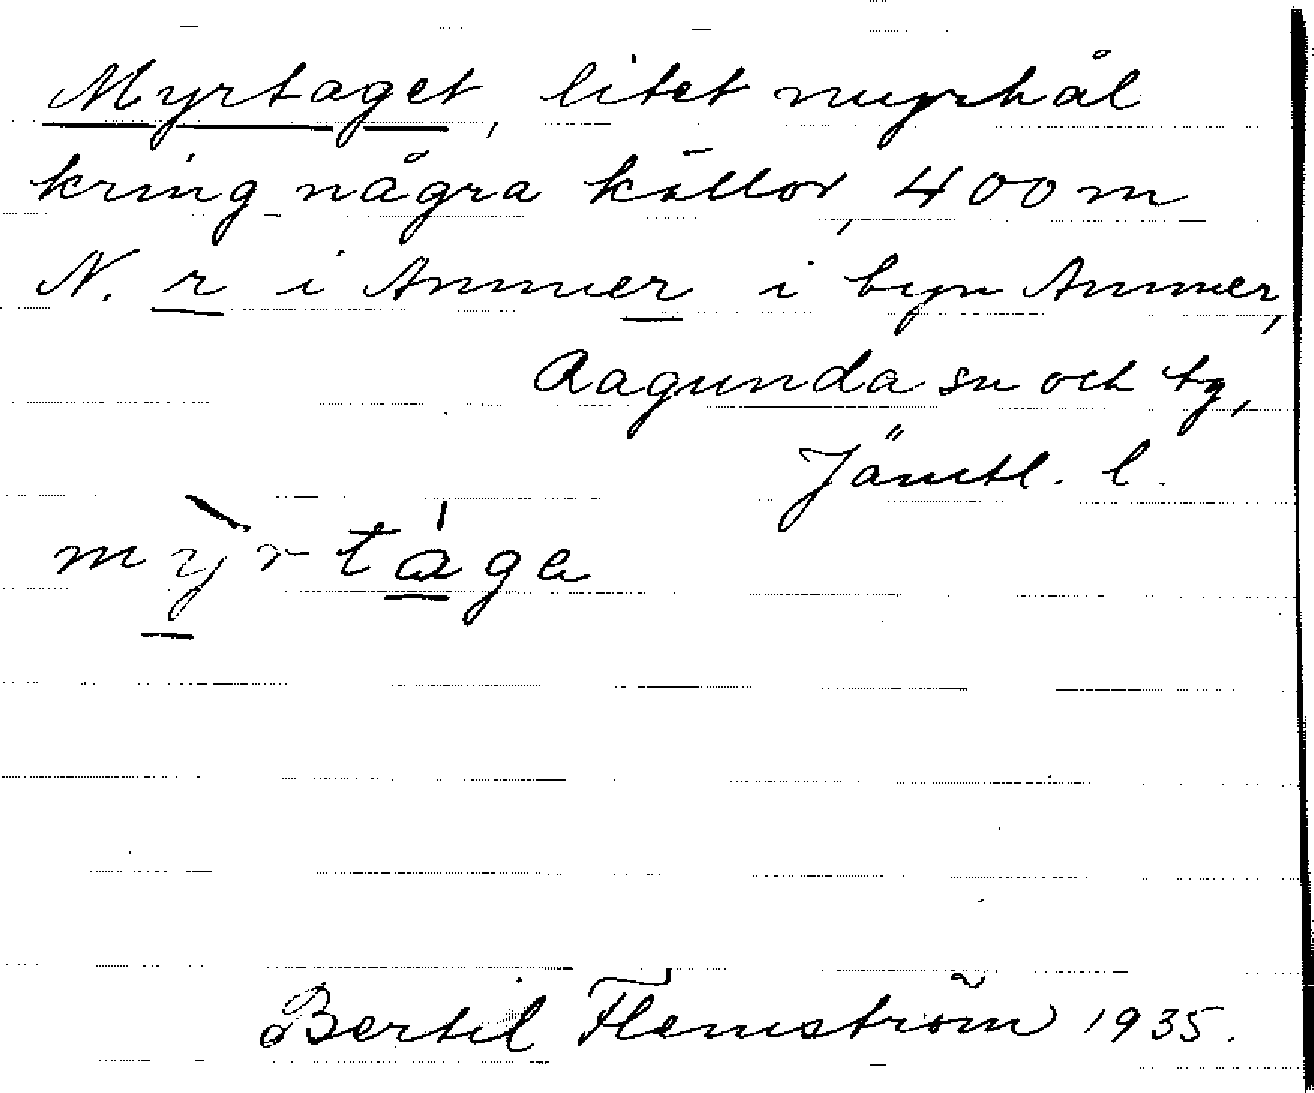 Myrtaget, litet myrhål
kring några källor, 400 m
N. r i Ammer i byn Ammer,
Ragunda sn och tg,
Jämtl. l.
mỳrtága
Bertil Flemström 1935.